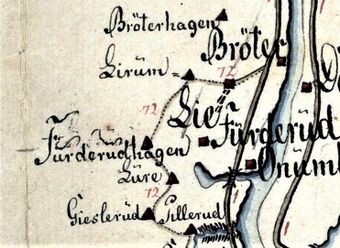 Bröterhagen
Bröter
Lirum
72
72
Lie
Fürderud
Fürderudhagen
Onüml
Lüre
72
Gieslerüd
Sillerud
1
1